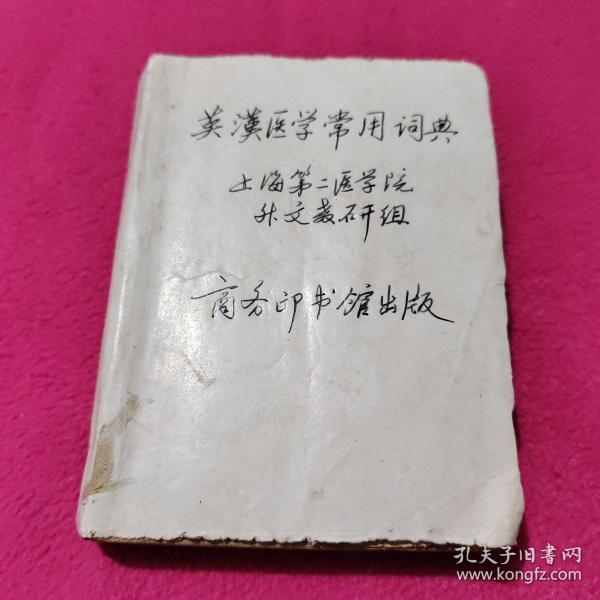 英漢医学常用词典
上海第二医学院
外文教研组
商务印书馆出版
孔夫子旧书网
www.kongfz.com